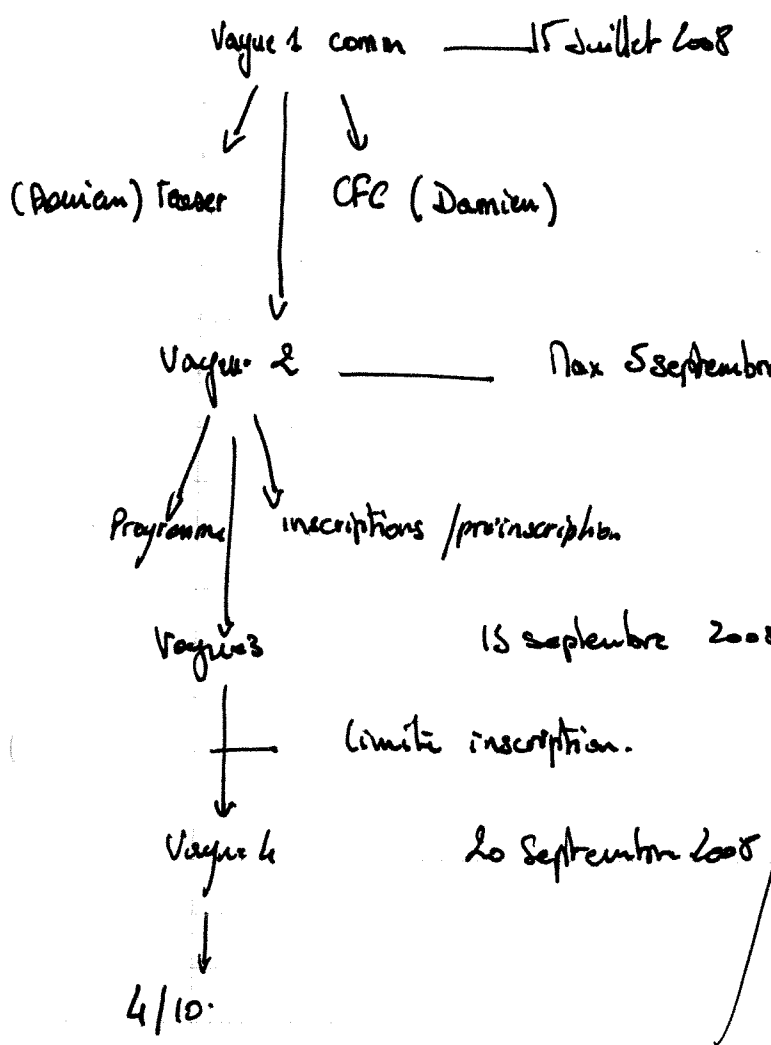 Vague 1 comm 15 Juillet 2008
(Damien) Teaser CFC (Damien)
Vague 2 Max 5 septembre
Programme inscriptions / préinscription
Vague 3 15 septembre 2008
limite inscription.
Vague 4 20 Septembre 2008
4/10.